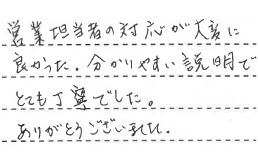 営業担当者の対応が大変に
良かった。分かりやすい説明で
とても丁寧でした。
ありがとうございました。